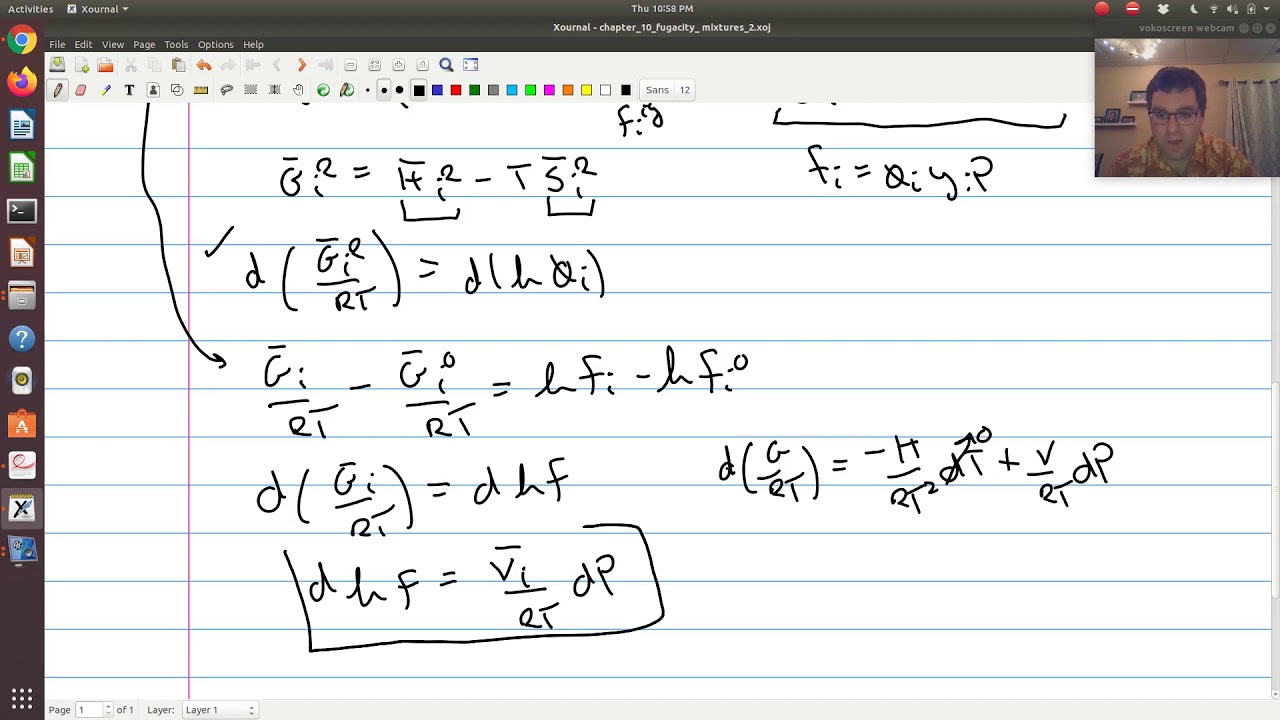 Activities Xournal Thu 10:58 PM
Xournal - chapter_10_fugacity_ mixtures_2.xoj
vokoscreen webcam
File Edit View Page Tools Options Help
Sans 12
f_i^ig
Ḡ_i^R = H̄_i^R - T S̄_i^R
f_i = φ_i y_i P
d(Ḡ_i^R/RT) = d(ln φ_i)
Ḡ_i/RT - Ḡ_i^0/RT = ln f_i - ln f_i^0
d(G/RT) = -H/RT² dT + V/RT dP
0
d(Ḡ_i/RT) = d ln f
d ln f = V̄_i/RT dP
Page 1 of 1 Layer: Layer 1